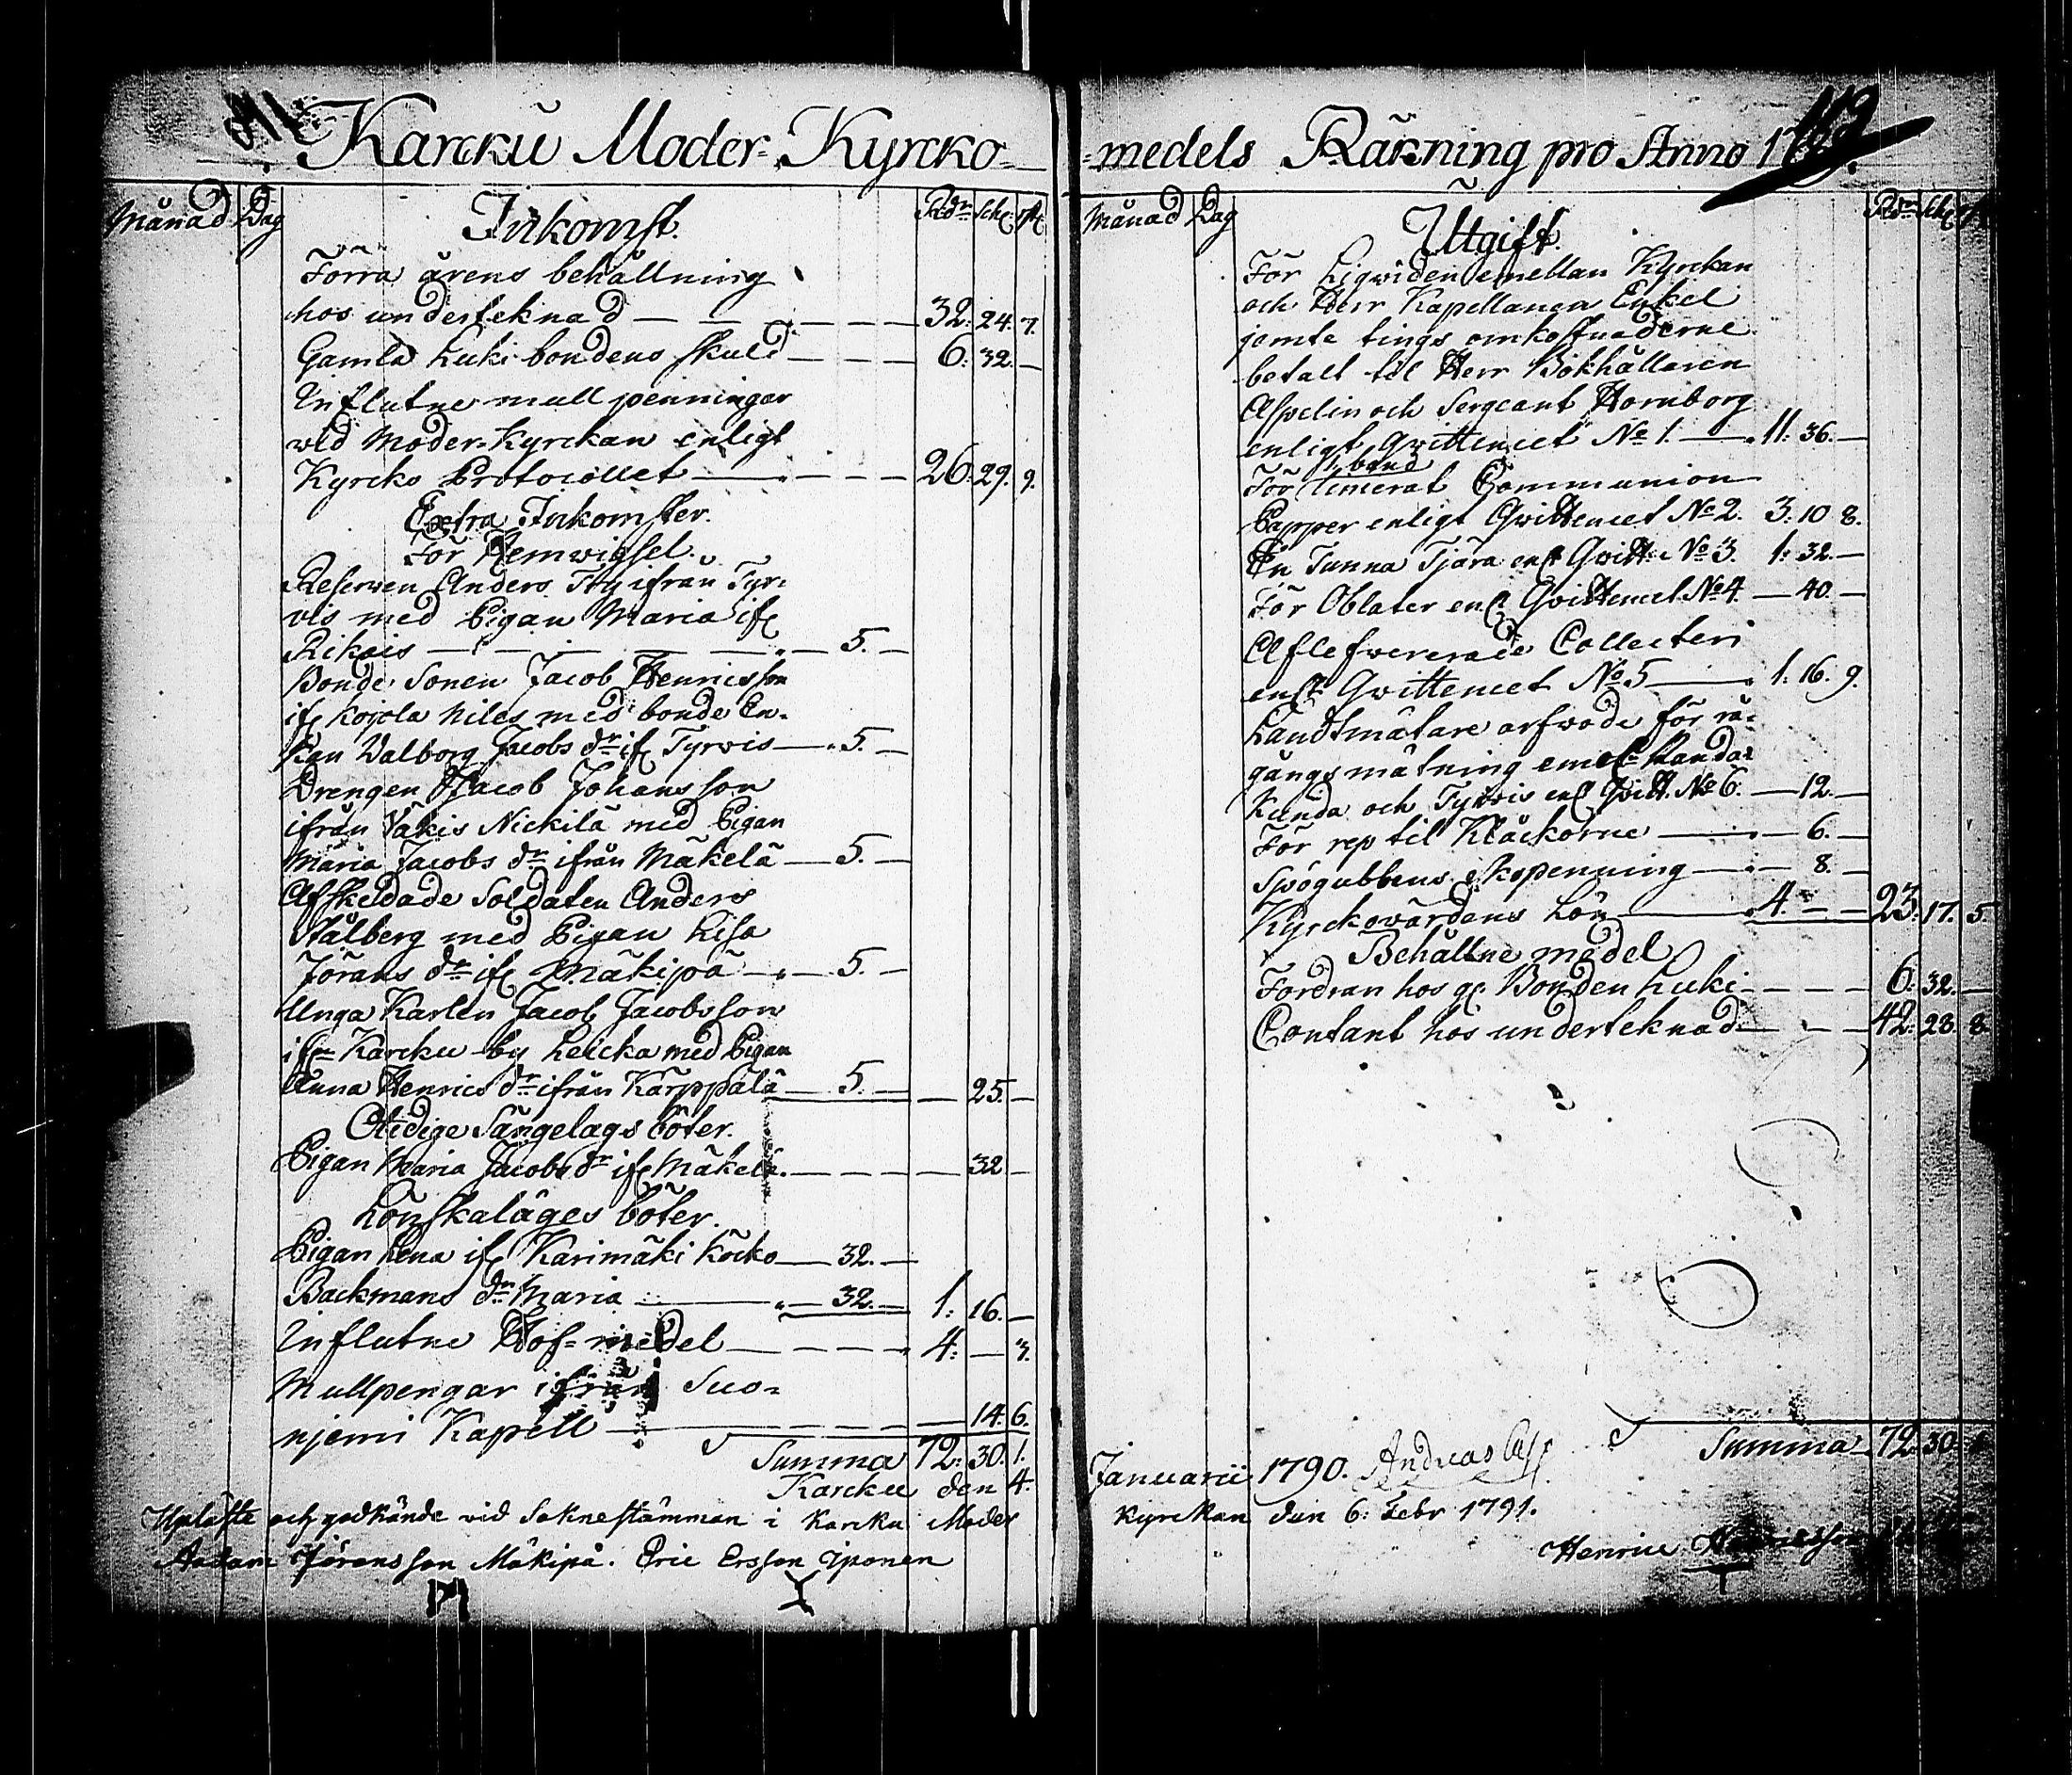 Karcku Moder-Kyrcko-
Månad Dag Inkomst. Rdr Sch. rst.
Förra årens behållning
hos underteknad — — — — — 32. 24. 7.
Gamla Luki bondens skuld — — — 6. 32. —
Influtne mull penningar
vid Moder-Kyrckan enligt
Kyrcko Protocollet — — — — 26. 29. 9.
Extra Inkomster.
För Hemvigsel.
Reserven Anders Try ifrån Tyr-
vis med Pigan Maria if:
Rikais — — — — — 5. —
Bonde Sonen Jacob Henricsson
if: Kojola Niles med bonde En-
kan Walborg Jacobs dr if: Tyrvis — 5. —
Drengen Jacob Johansson
ifrån Väkis Nickilä med Pigan
Maria Jacobs dr ifrån Mäkelä — 5. —
Afskedade Soldaten Anders
Stålberg med Pigan Lisa
Jörans dr if: Mäkipä — 5. —
Unga Karlen Jacob Jacobsson
ifrn Karcku by Leicka med Pigan
Anna Henrics dr ifrån Kärppälä — 5. — — 25. —
Otidige Sängelags böter.
Pigan Maria Jacobs dr if: Mäkelä. — — — — 32 —
Lönskaläges böter.
Pigan Lena if: Karimäki Köcko — 32. —
Backmans dr Maria — 32. — 1. 16. —
Influtne Hof-medel — — — — 4. — 3.
Mullpengar ifrån Suo-
njemi Kapell — — — — — 14. 6.
Summa 72. 30. 1.
Karcku den 4.
Upläste och godkände vid Soknestämman i Karcku Moder
Adam Jöransson Mäkipä. Eric Ersson Iponen
-medels Räkning pro Anno 1789.
Månad Dag Utgift. Rdr Sch
För Liqviden emellan Kyrckan
och Herr Kapellanen Enkel
jemte tings omkostnaderne
betalt til Herr Bokhållaren
Aspelin och Sergeant Hornborg
enligt Qvittencet No 1. — 11. 36. —
1 band
För limerat Communion
Papper enligt Qvittencet No 2. 3. 10 8.
En Tunna Tjära enl: Qvitt: No 3. 1. 32. —
För Oblater enl: Qvittencet No 4. — 40. —
Aflefwererade Collecter
enl: Qvittencet No 5 — 1. 16. 9.
Landtmätare arfwode för rå-
gångs mätning emel: Handa-
kunda och Tyrvis enl: Qvitt. No 6. — 12. —
För rep til Klåckorne — — 6. —
Spögubbens skopenning — — 8. —
Kyrckowärdens Lön — 4. — — 23. 17. 5.
Behållne medel
Fordran hos gl: Bonden Luki — — — — 6. 32. —
Contant hos underteknad — — — 42. 28. 8.
Summa 72. 30.
Januarii 1790. Andreas
Kyrckan den 6: Febr 1791.
Henric